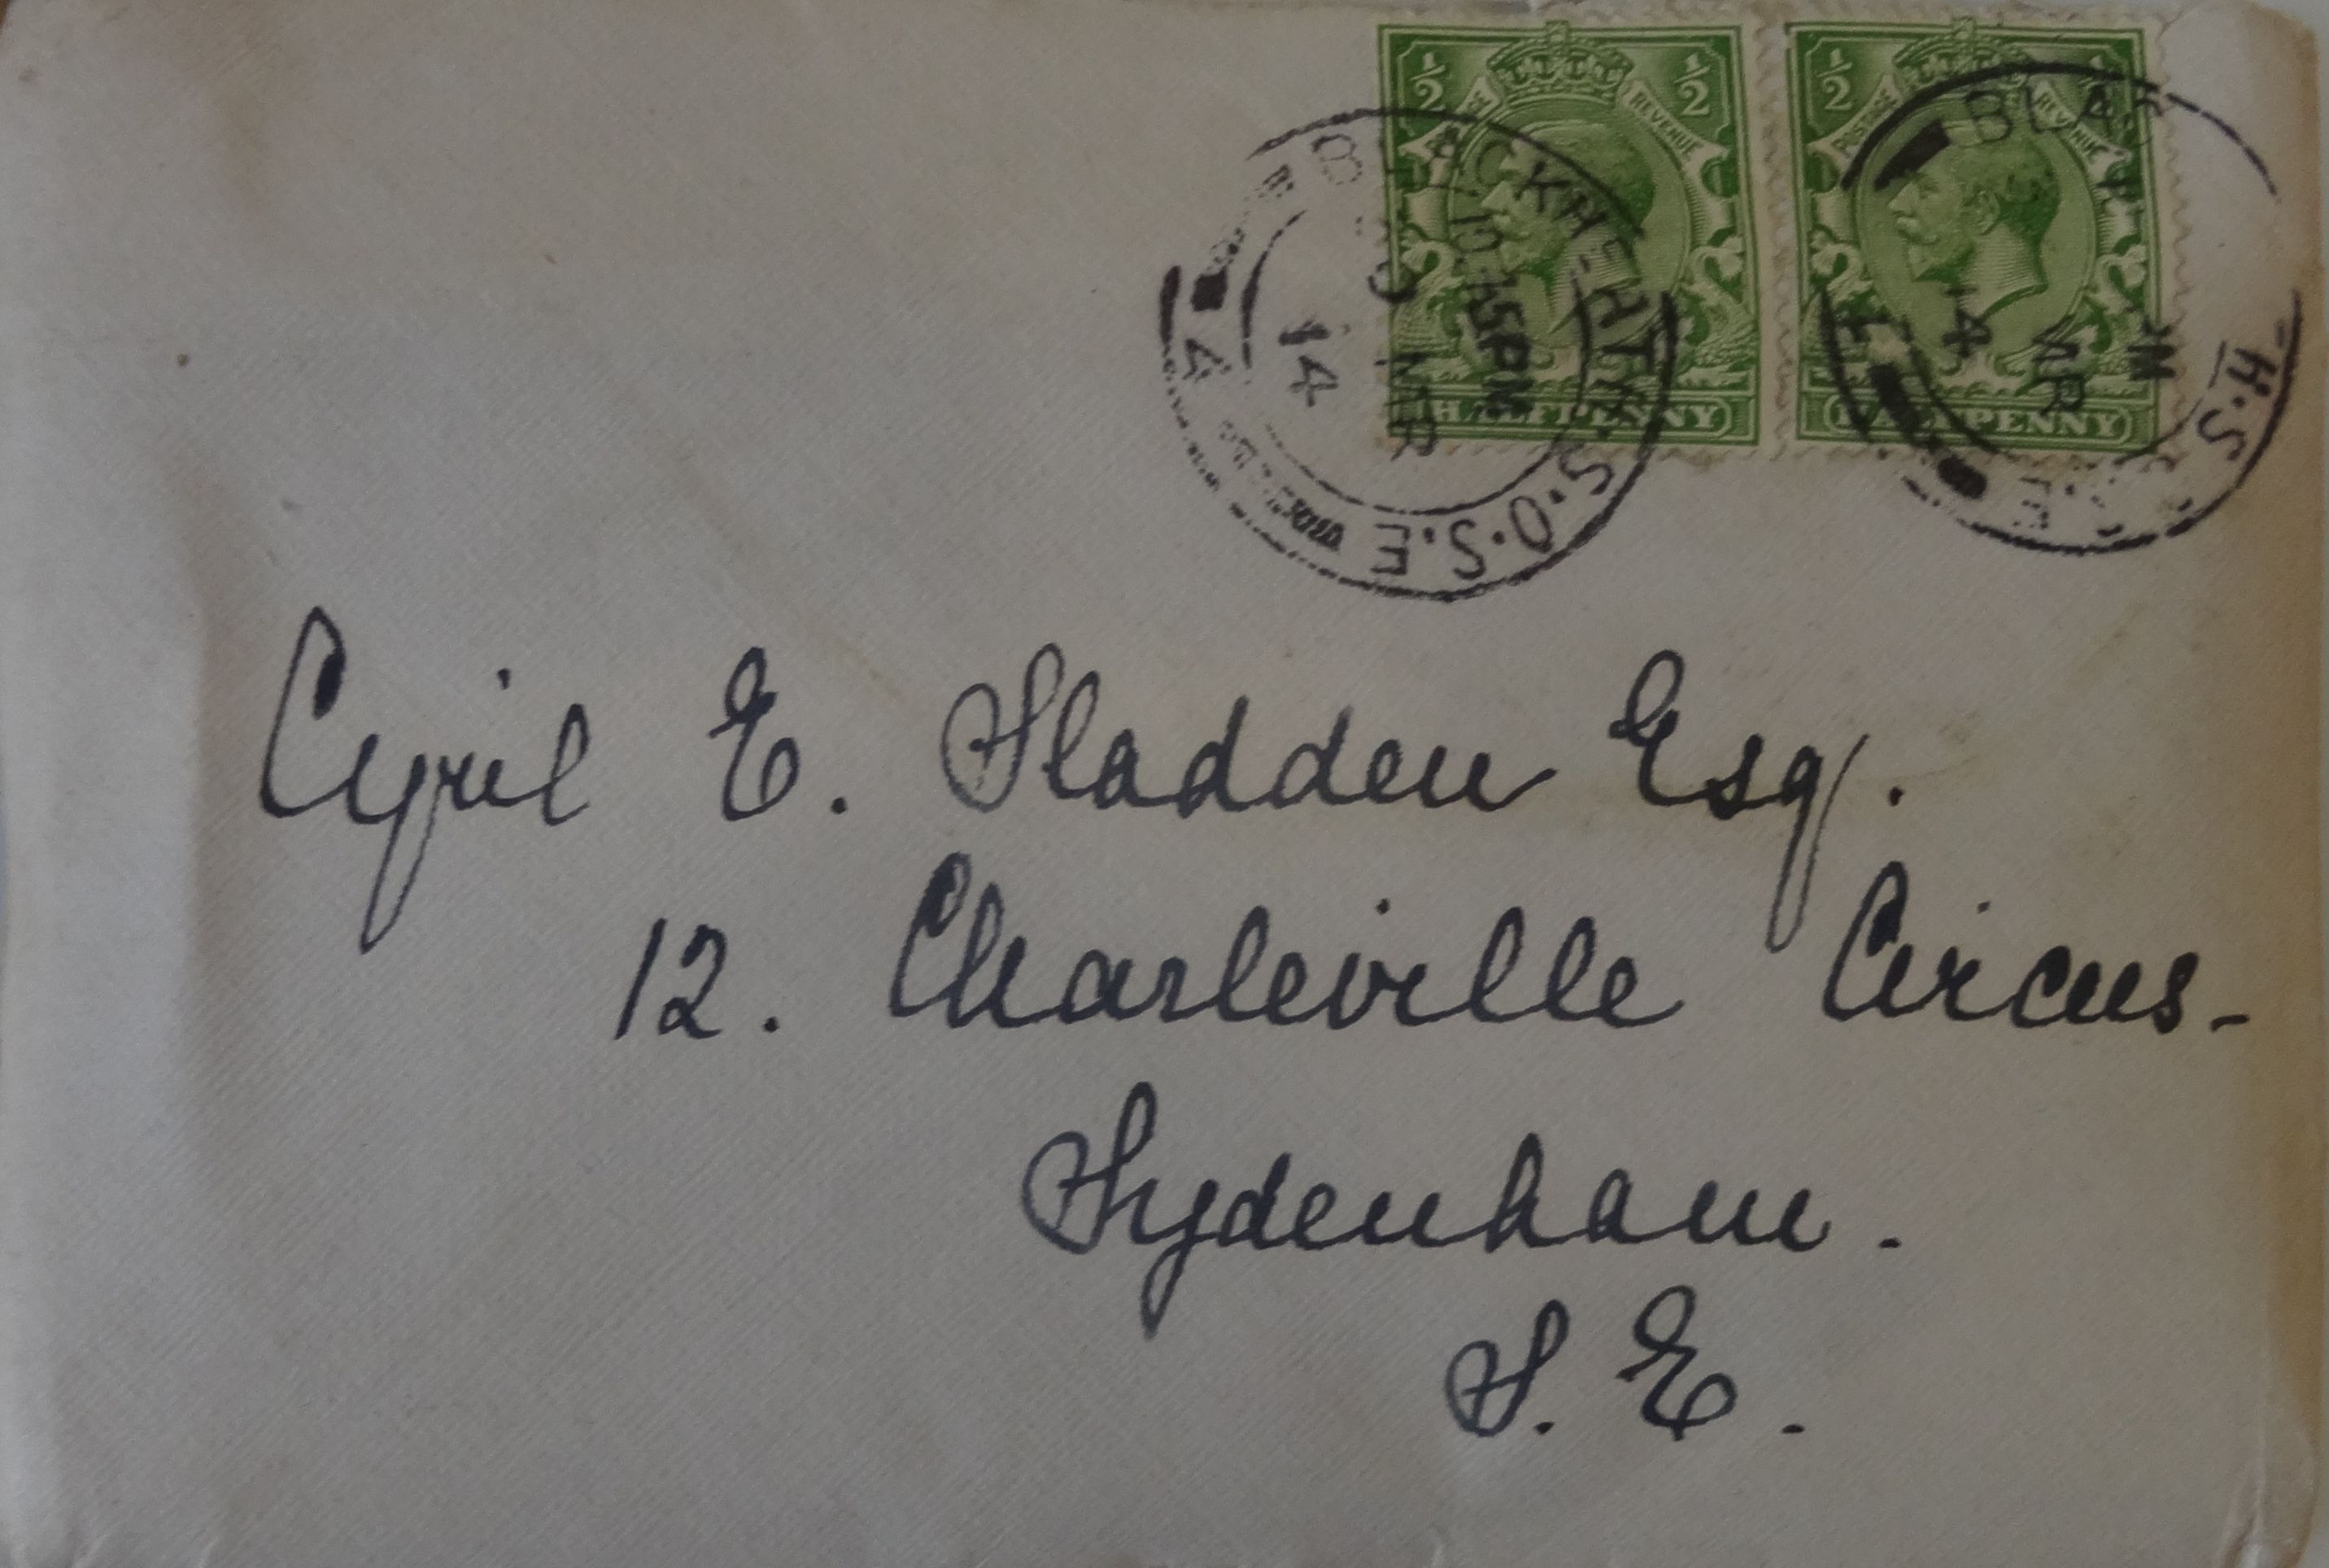 ½ ½
POSTAGE REVENUE
HALFPENNY
½
POSTAGE REVENUE
HALFPENNY
BLACKHEATH.S.O.S.E
10.15PM
9 MR
14
4
BLA
H.S
14
Cyril E. Sladden Esq.
12. Charleville Circus-
Sydenham.
S. E.